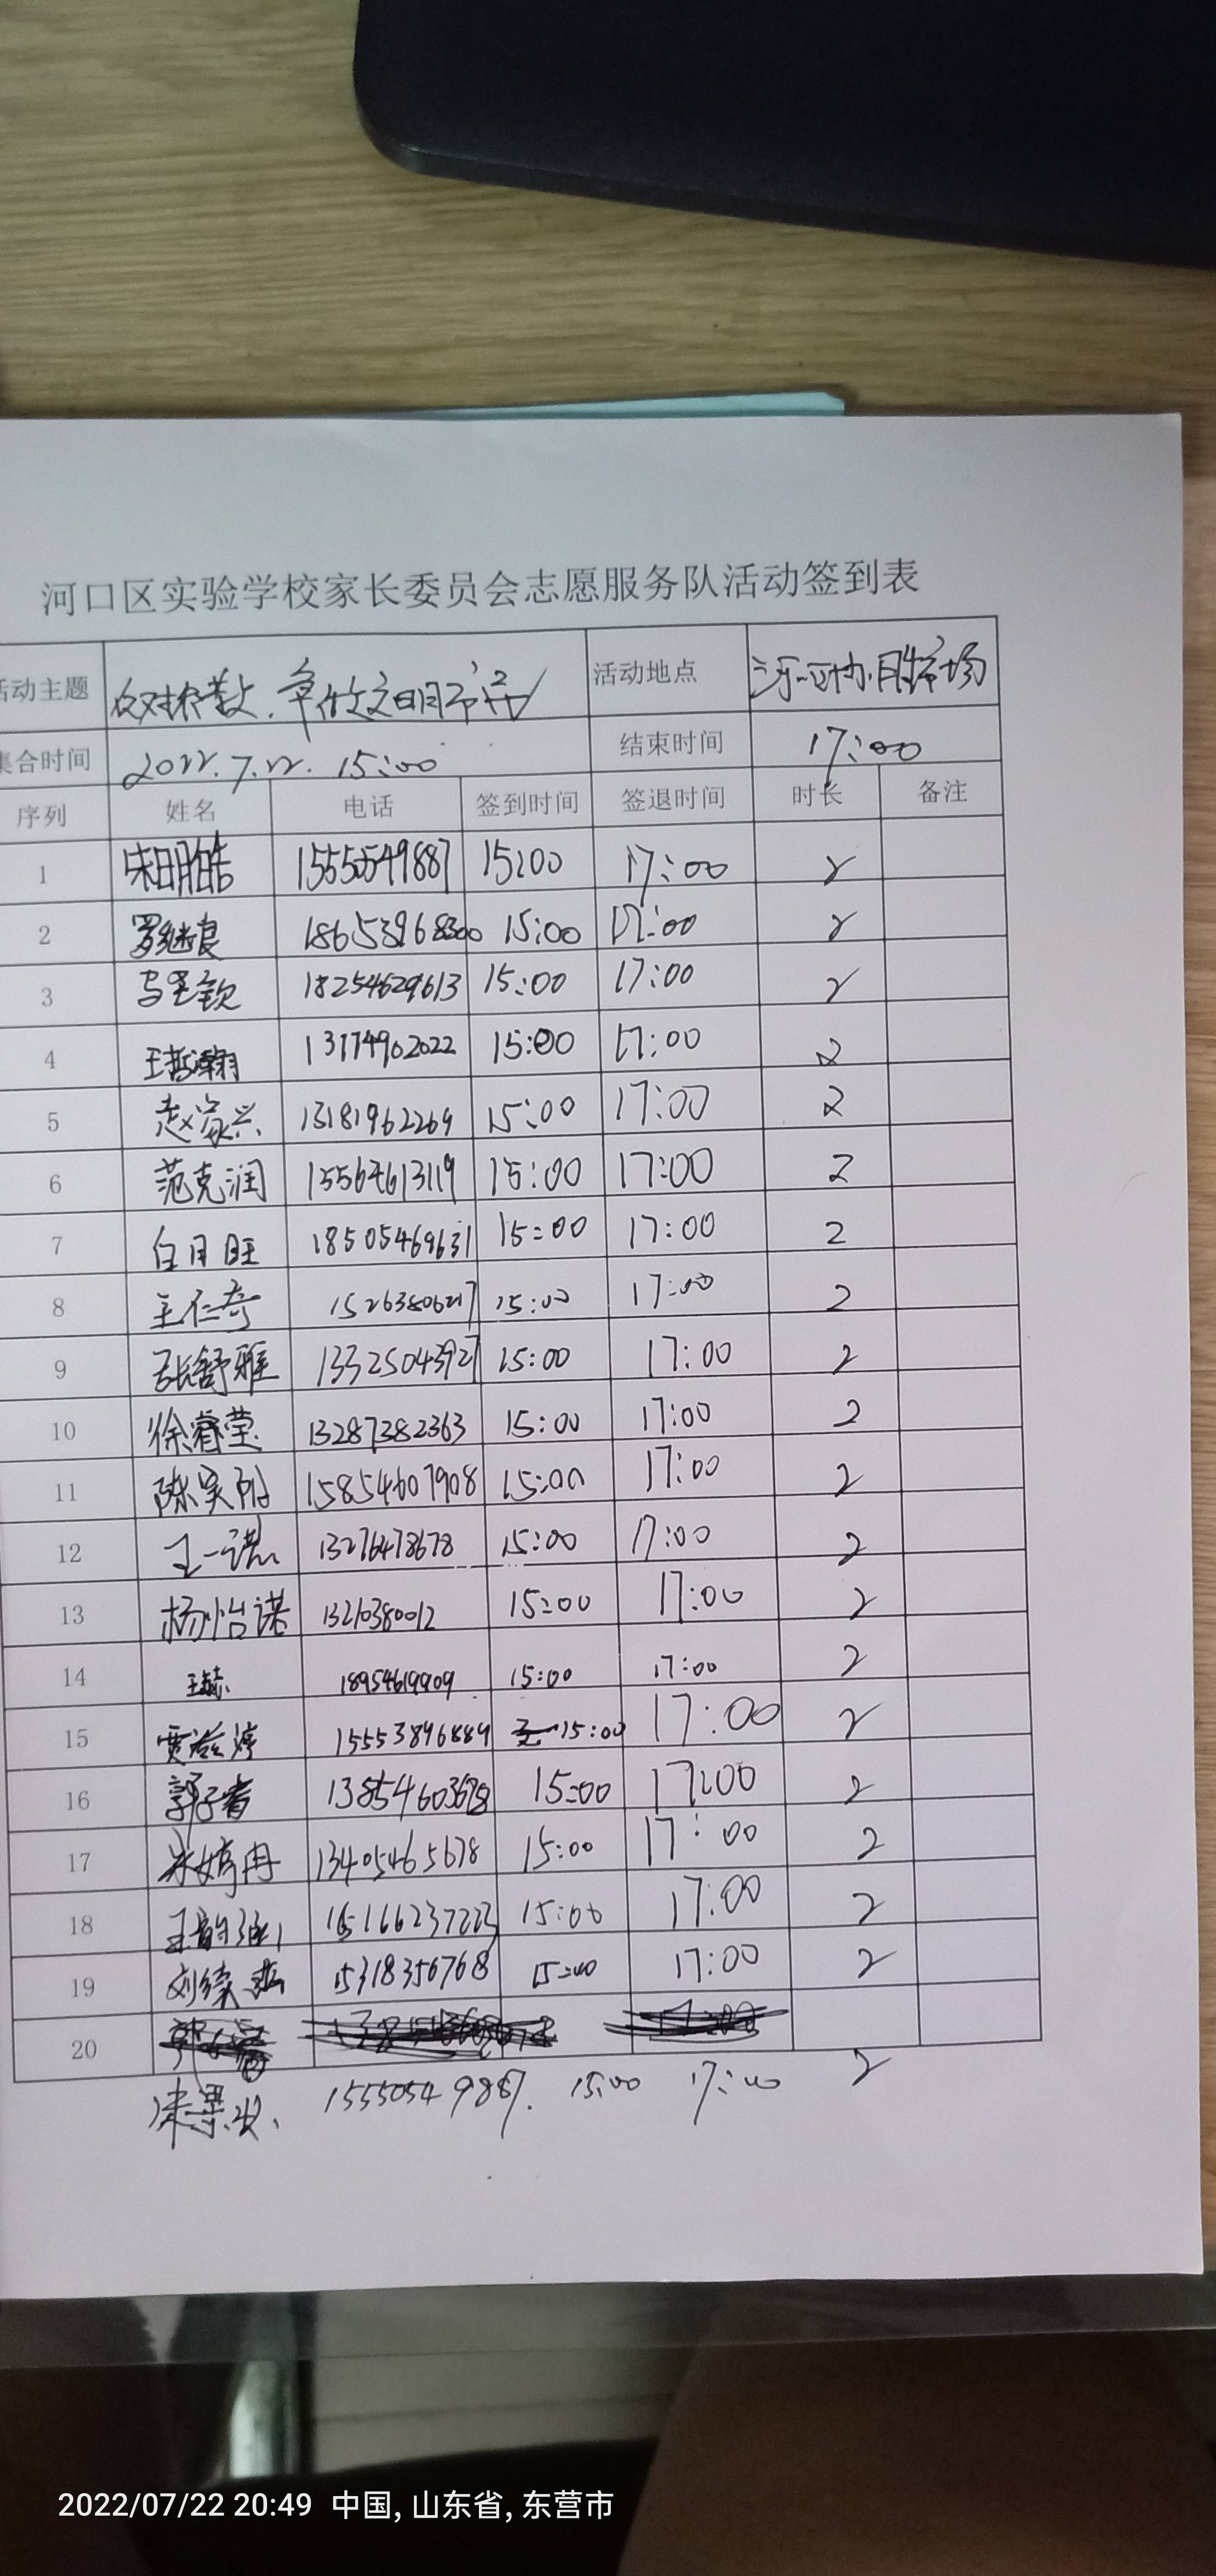 河口区实验学校家长委员会志愿服务队活动签到表
活动主题 文明 活动地点 市场
集合时间 2022.7.22. 15:00 结束时间 17:00
序列 姓名 电话 签到时间 签退时间 时长 备注
1 15550549887 15:00 17:00 2
2 罗继良 18653968300 15:00 17:00 2
3 18254629613 15:00 17:00 2
4 王哲瀚 13174902022 15:00 17:00 2
5 赵家兴 13181962269 15:00 17:00 2
6 范克润 15567613119 15:00 17:00 2
7 白月旺 18505469631 15:00 17:00 2
8 王仁奇 15263806217 15:00 17:00 2
9 张舒雅 13325043927 15:00 17:00 2
10 徐睿莹 13287382363 15:00 17:00 2
11 陈 15854607908 15:00 17:00 2
12 王一诺 13276478678 15:00 17:00 2
13 杨怡诺 13210380012 15:00 17:00 2
14 18954619909 15:00 17:00 2
15 贾 婷 15553896889 15:00 17:00 2
16 郭子睿 15:00 17:00 2
17 13405465678 15:00 17:00 2
18 王韵 15:00 17:00 2
19 刘 15318356768 15:00 17:00 2
20
15550549887. 15:00 17:00 2
2022/07/22 20:49 中国, 山东省, 东营市